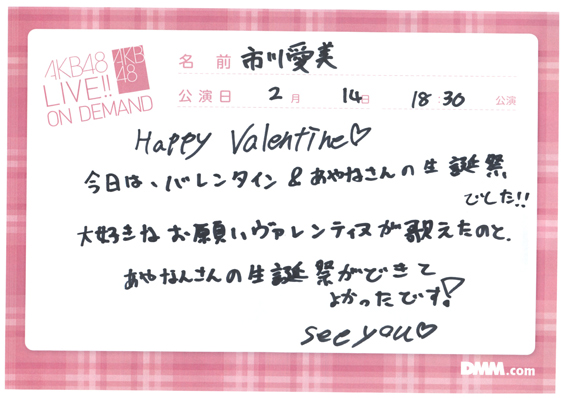 AKB48
LIVE!!
ON DEMAND
AKB
48
名 前 市川愛美
公演日 2月 14日 18:30 公演
Happy Valentine♡
今日は、バレンタイン&あやなさんの生誕祭
でした!!
大好きなお願いヴァレンティヌが歌えたのと、
あやなんさんの生誕祭ができて
よかったです!
see you♡
DMM.com